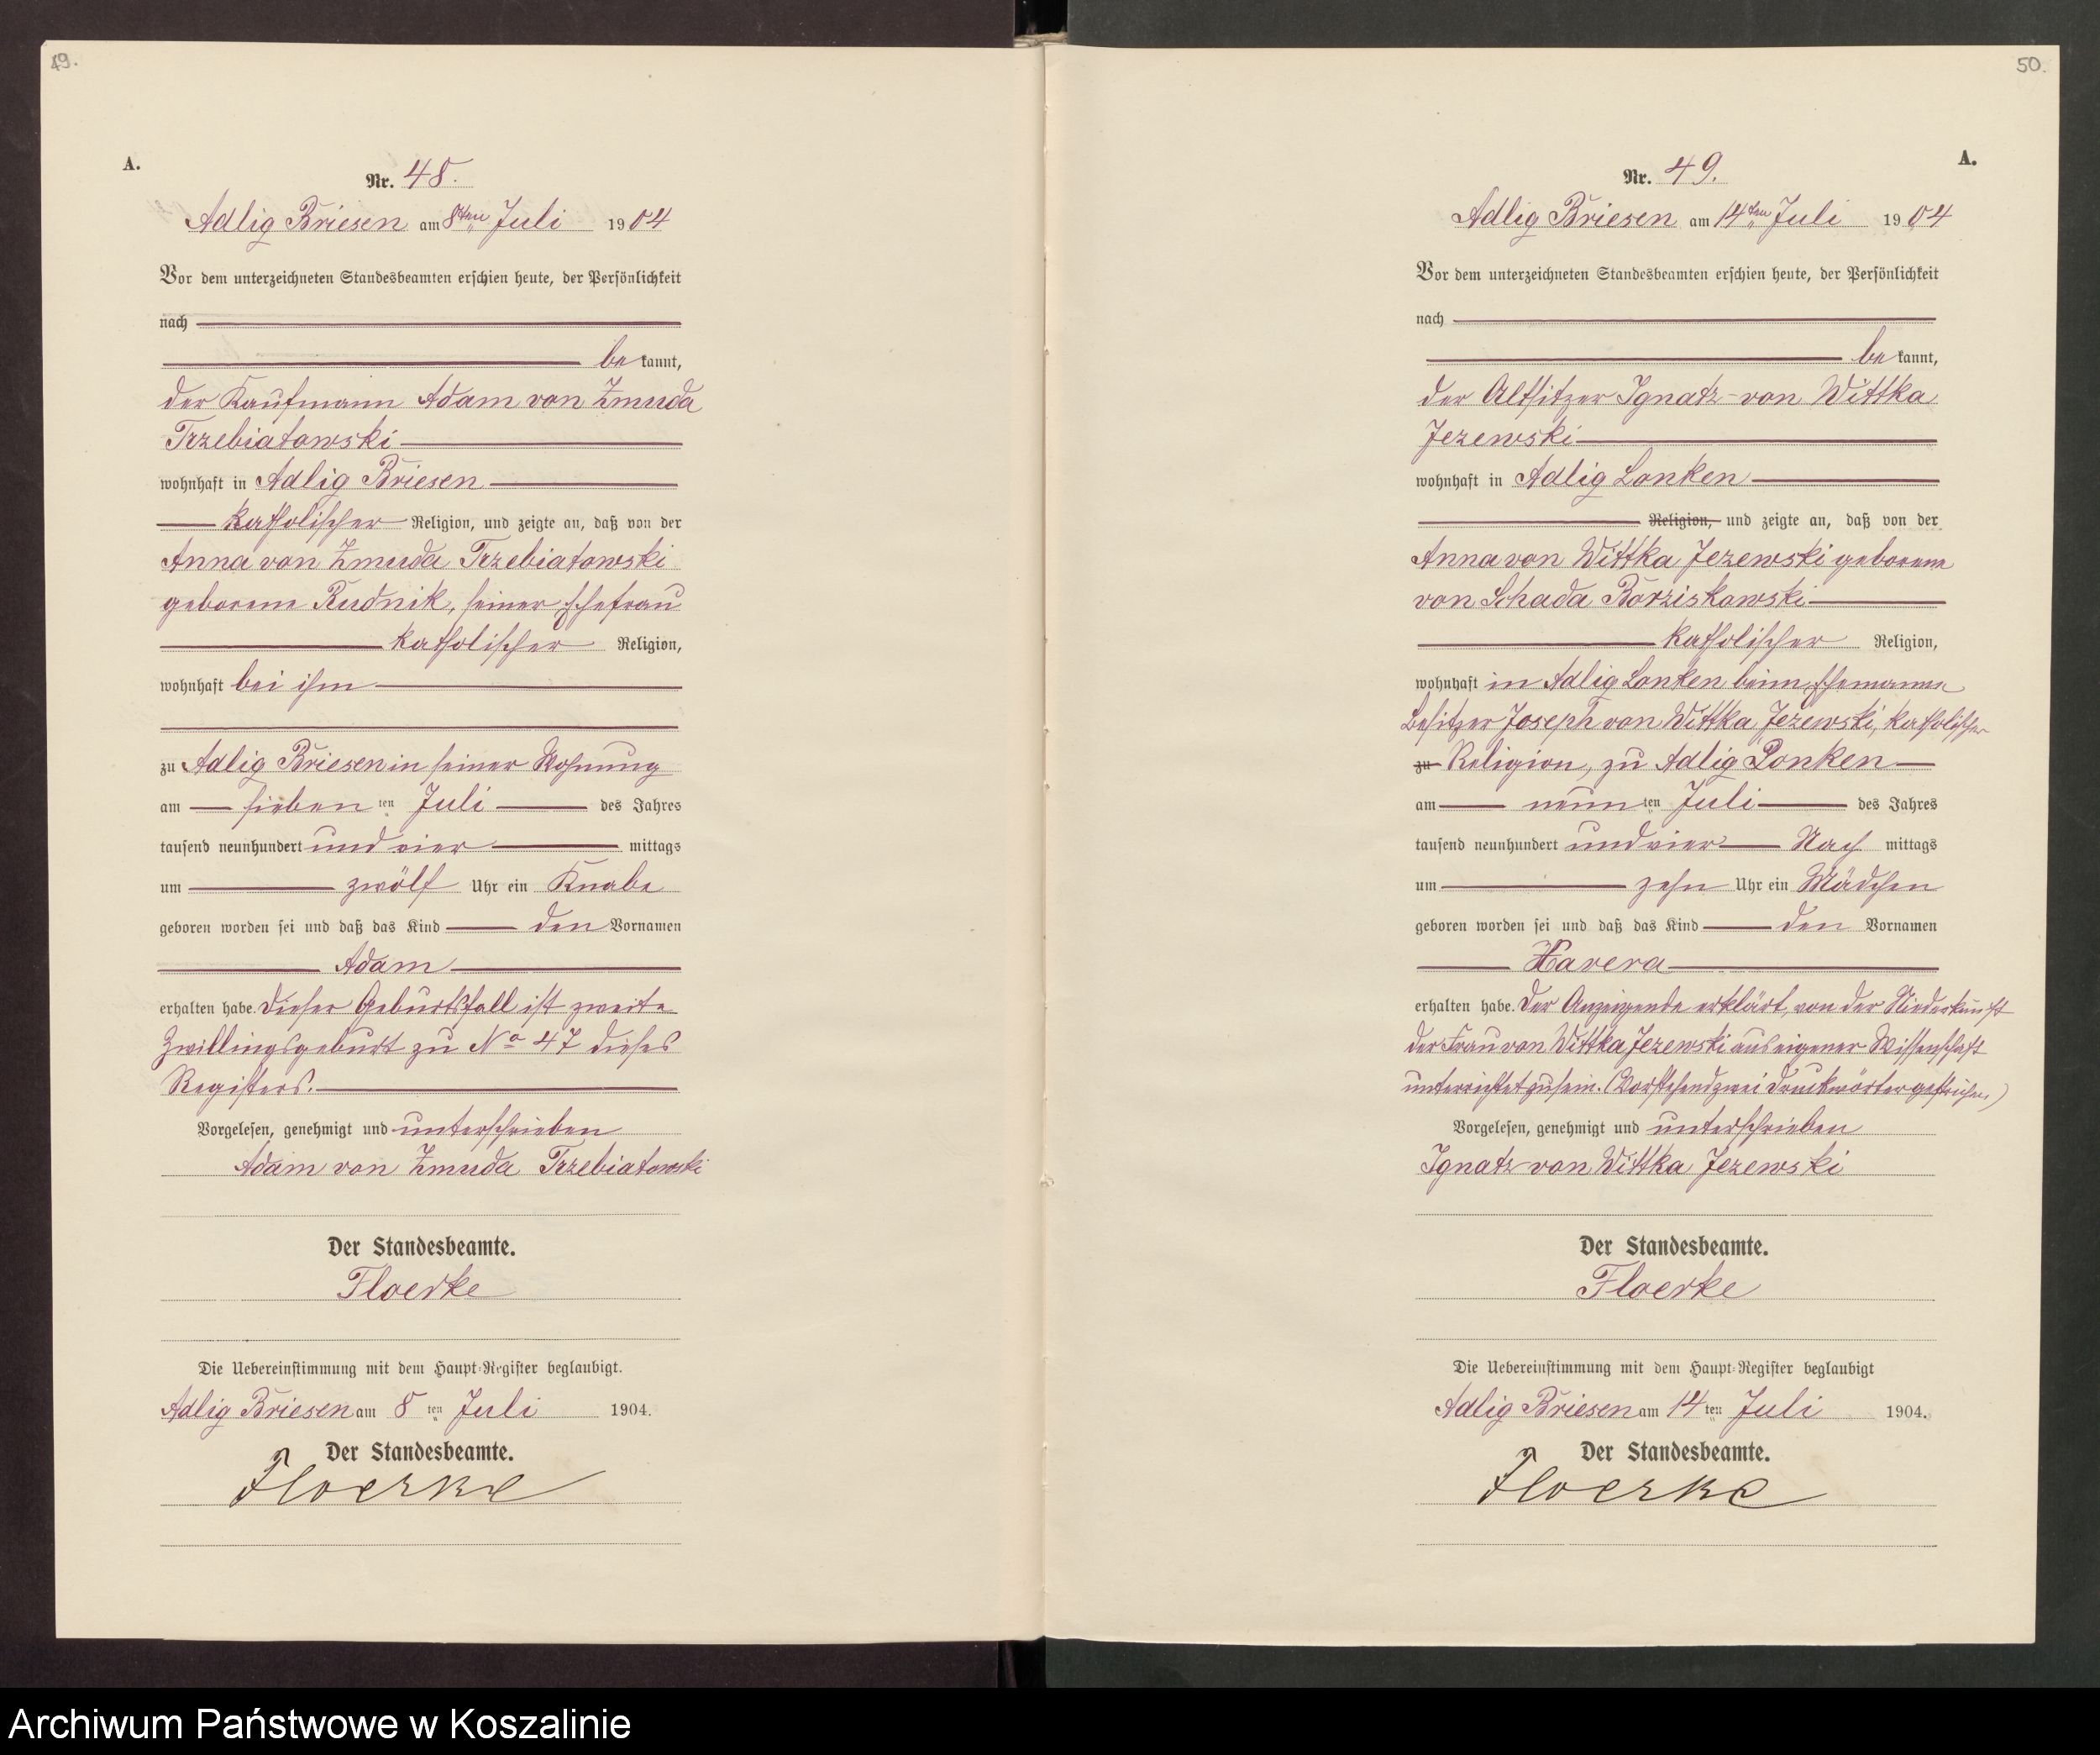 49.
A.
Nr. 48.
Adlig Briesen am 8ten Juli 1904
Vor dem unterzeichneten Standesbeamten erschien heute, der Persönlichkeit
nach
be kannt,
der Kaufmann Adam von Zmuda
Trzebiatowski
wohnhaft in Adlig Briesen
katholischer Religion, und zeigte an, daß von der
Anna von Zmuda Trzebiatowski
geborene Rudnik, seiner Ehefrau
katholischer Religion,
wohnhaft bei ihm
zu Adlig Briesen in seiner Wohnung
am sieben ten Juli des Jahres
tausend neunhundert und vier mittags
um zwölf Uhr ein Knabe
geboren worden sei und daß das Kind den Vornamen
Adam
erhalten habe. Dieser Geburtsfall ist zweite
Zwillingsgeburt zu No 47 dieses
Registers.
Vorgelesen, genehmigt und unterschrieben
Adam von Zmuda Trzebiatowski
Der Standesbeamte.
Floerke
Die Uebereinstimmung mit dem Haupt-Register beglaubigt.
Adlig Briesen am 8 ten Juli 1904.
Der Standesbeamte.
Floerke
50.
A.
Nr. 49.
Adlig Briesen am 14ten Juli 1904
Vor dem unterzeichneten Standesbeamten erschien heute, der Persönlichkeit
nach
be kannt,
der Altsitzer Ignatz von Wittka
Jezewski
wohnhaft in Adlig Lonken
Religion, und zeigte an, daß von der
Anna von Wittka Jezewski geborene
von Schada Borziskowski
katholischer Religion,
wohnhaft in Adlig Lonken beim Ehemanne
Besitzer Joseph von Wittka Jezewski, katholischer
zu Religion, zu Adlig Lonken
am neun ten Juli des Jahres
tausend neunhundert und vier Nach mittags
um zehn Uhr ein Mädchen
geboren worden sei und daß das Kind den Vornamen
Xavera
erhalten habe. Der Anzeigende erklärt, von der Niederkunft
der Frau von Wittka Jezewski aus eigener Wissenschaft
unterrichtet zu sein. (Vorstehend zwei Druckwörter gestrichen.)
Vorgelesen, genehmigt und unterschrieben
Ignatz von Wittka Jezewski
Der Standesbeamte.
Floerke
Die Uebereinstimmung mit dem Haupt-Register beglaubigt
Adlig Briesen am 14 ten Juli 1904.
Der Standesbeamte.
Floerke
Archiwum Państwowe w Koszalinie